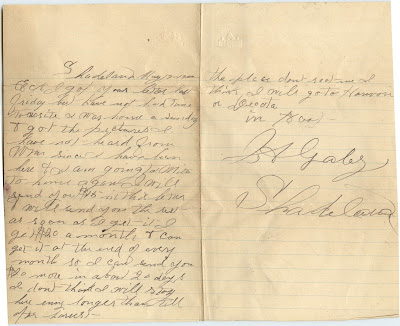 Shadeland
I got your letter last
Friday but have not had time
to write I was home a Sunday
& got the pictures I
have not heard from
since I have been
here & I am going to
to home again I will
send you $15 in this letter
I will send you the rest
as soon as I get it I
get $20 a month & I can
get it at the end of every
month so I can send you
more in about 20 days
I don't think I will stay
here any longer than till
the place don't seet me I
think I will go to Hannon
or Oceola
in
Shadeland